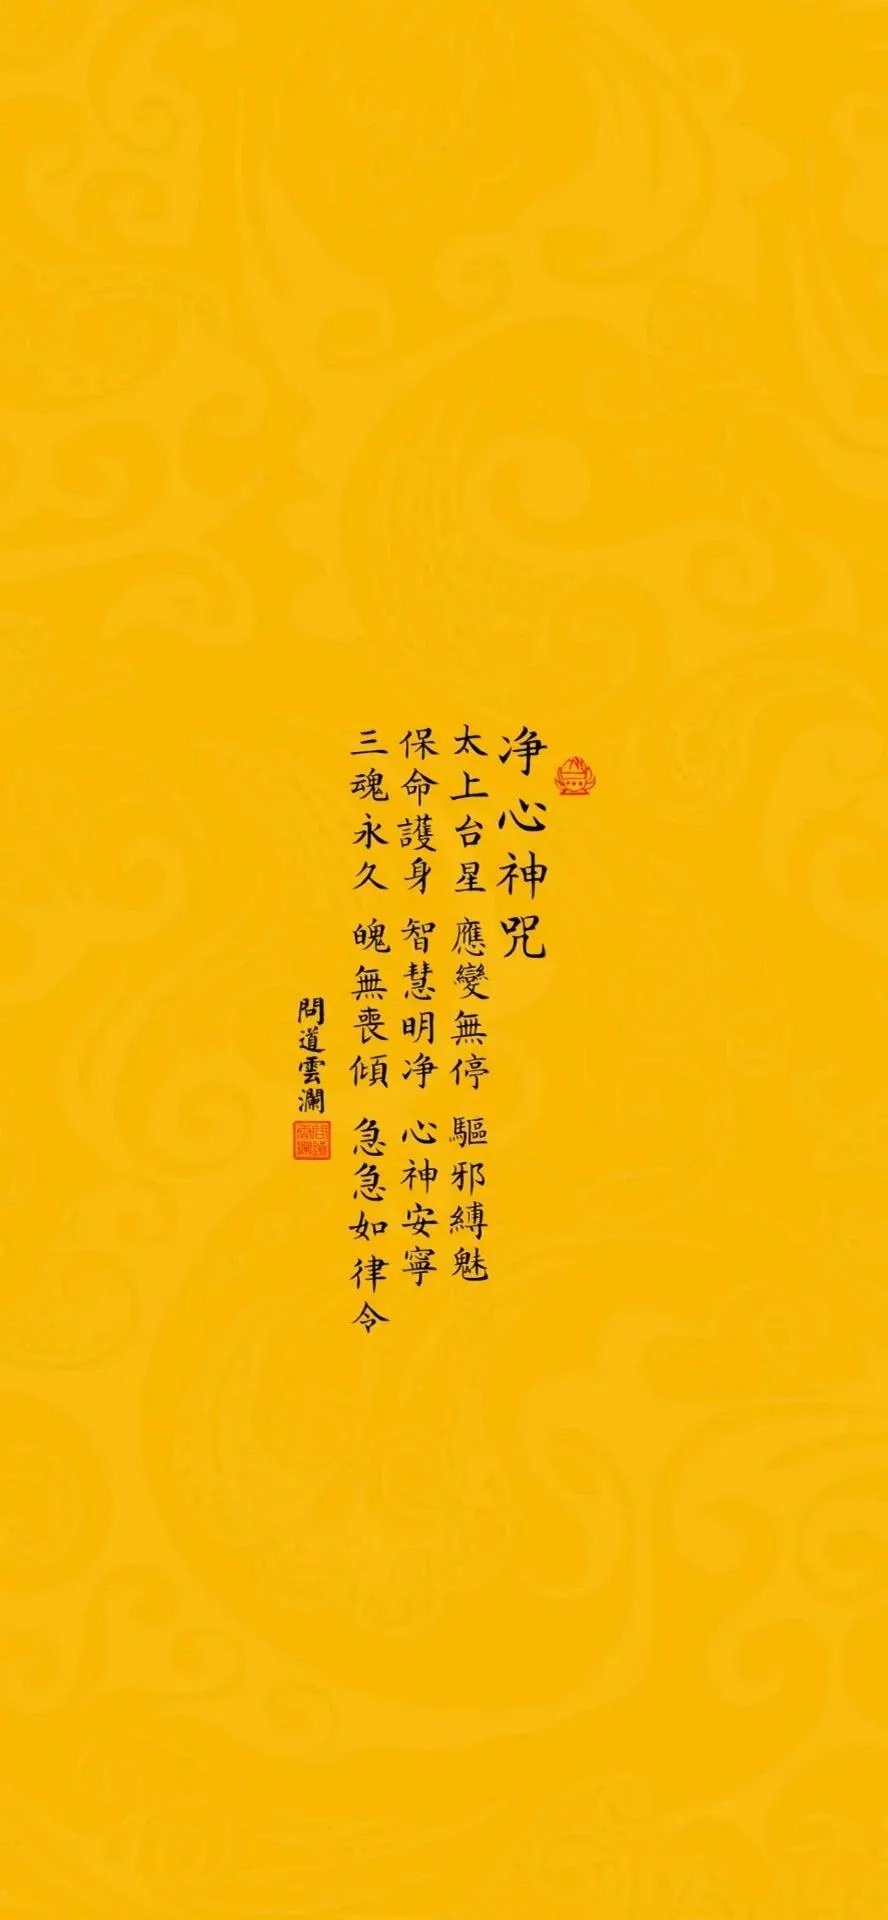 净心神咒
太上台星 應變無停 驅邪縛魅
保命護身 智慧明净 心神安寧
三魂永久 魄無喪傾 急急如律令
問道雲瀾
問道雲瀾